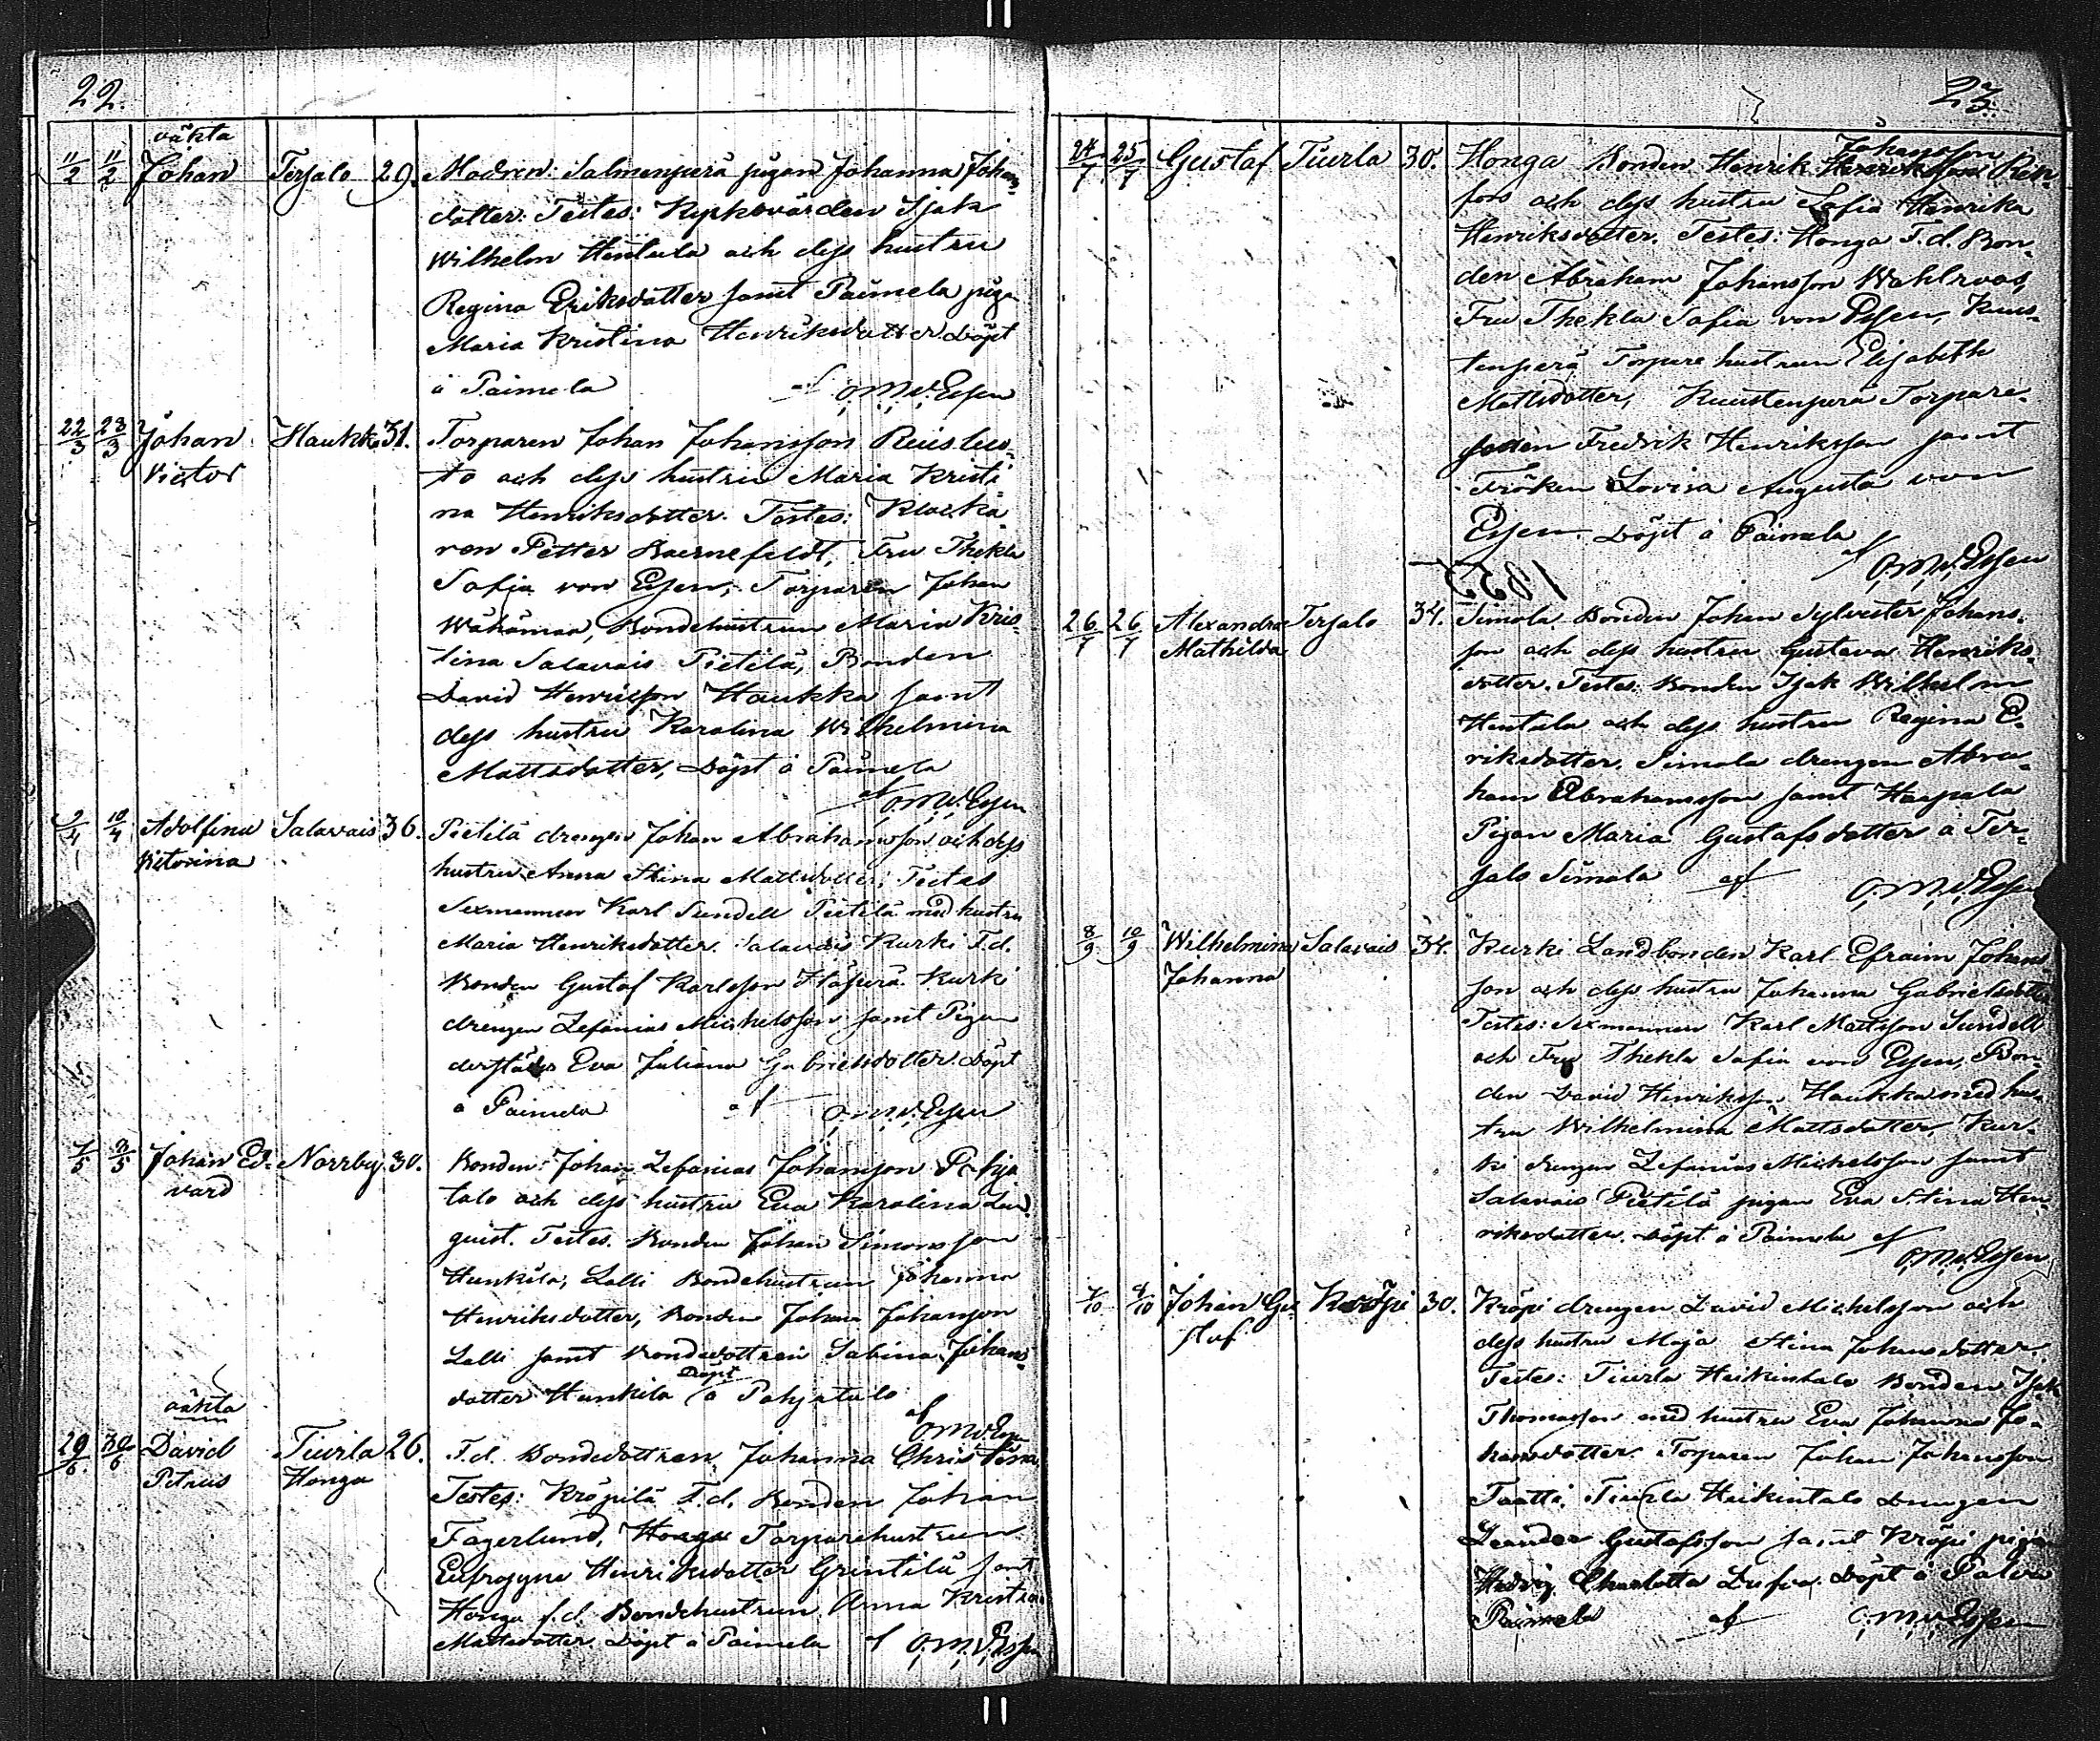 22.
oäkta
11/2 11/2 Johan Tersalo 29. Modren: Salmenperä pigan Johanna Johans
dotter. Testes: Kyrkovärden Isak
Wilhelm Hintula och dess hustru
Regina Eriksdotter samt Paimela piga
Maria Kristina Henriksdotter. Döpt
å Paimela af O.M.v.Essen
22/3 23/3 Johan Haukka 31. Torparen Johan Johansson Ruisluo-
Victor to och dess hustru Maria Kristi
na Henriksdotter. Testes: Klocka
ren Petter Boernefeldt, Fru Thekla
Sofia von Essen, Torparen Johan
Wähämaa, Bondehustrun Maria Kris-
tina Salavais Pietilä, Bonden
David Henriksson Haukka samt
dess hustru Karolina Wilhelmina
Mattsdotter, Döpt å Paimela
af O.M.v.Essen
9/4 10/4 Adolfina Salavais 36. Pietilä drengen Johan Abrahamsson och dess
Victorina hustru Anna Stina Mattsdotter; Testes
Sexmannen Karl Sundell Pietilä med hustru
Maria Henriksdotter. Salavais Kurki F.d.
Bonden Gustaf Karlsson Kurki
drengen Zefanias Michelsson samt Pigan
derstädes Eva Juliana Gabrielsdotter. Döpt
å Paimela af O.M.v.Essen
7/5 9/5 Johan Ed- Norrby 30. Bonden Johan Zefanias Johansson Pohja
vard talo och dess hustru Eva Karolina Lind
quist. Testes. Bonden Johan Simonsson
Hunkila, Lalli Bondehustrun Johanna
Henriksdotter, Bonden Johan Johansson
Lalli samt Bondedottren Sabina Johans-
dotter Hunkila Döpt å Pohjatalo
af O.M.v.Essen
oäkta
29/6 30/6 David Tiurla 26. F.d. Bondedottren Johanna Christina
Petrus Honga Testes: Kröpilä F.d. Bonden Johan
Fagerlund, Honga Torparehustrun
Eufrosyne Henriksdotter Grintilä samt
Honga f.d. Bondehustrun Anna Kristina
Mattsdotter. Döpt å Paimela af O.M.v.Essen
23.
Johansson
24/7 25/7 Gustaf Tiurla 30. Honga Bonden Henrik Henriksson
fors och dess hustru Sofia Henrika
Henriksdotter. Testes: Honga F.d. Bon-
den Abraham Johansson Wahlroos,
Fru Thekla Sofia von Essen, Kuus-
tenperä Torpare hustrun Elisabeth
Mattsdotter, Kuustenperä Torpare-
sonen Fredrik Henriksson samt
Fröken Lovisa Augusta von
Essen Döpt å Paimela
af O.M.v.Essen
26/7 26/7 Alexandra Tersalo 34. Simola Bonden Johan Sylvester Johans-
Mathilda son och dess hustru Gustava Henriks-
dotter. Testes: Bonden Isak Wilhelm
Hintula och dess hustru Regina E-
riksdotter. Simola drengen Abra-
ham Abrahamsson samt Haapala
Pigan Maria Gustafsdotter å Ter-
salo Simola af O.M.v.Essen
8/9 10/9 Wilhelmina Salavais 34. Kurki Landbonden Karl Efraim Johans
Johanna son och dess hustru Johanna Gabrielsdotter
Testes: Sexmannen Karl Mattsson Sundell
och Fru Thekla Sofia von Essen, Bon-
den David Henriksson Haukka med hus-
tru Wilhelmina Mattsdotter, Kur-
ki drengen Zefanias Michelsson samt
Salavais Pietilä pigan Eva Stina Hen-
riksdotter. Döpt å Paimela af
O.M.v.Essen
7/10 8/10 Johan Gu- Kröpi 30. Kröpi drengen David Michelsson och
staf dess hustru Maja Stina Johansdotter.
Testes: Tiurla Heikintalo Bonden Isak
Thomasson med hustru Eva Johanna Jo-
hansdotter. Torparen Johan Johansson
Taatti. Tiurla Heikintalo Drengen
Leander Gustafsson samt Kröpi pigan
Hedvig Charlotta Döpt å
Paimela af O.M.v.Essen